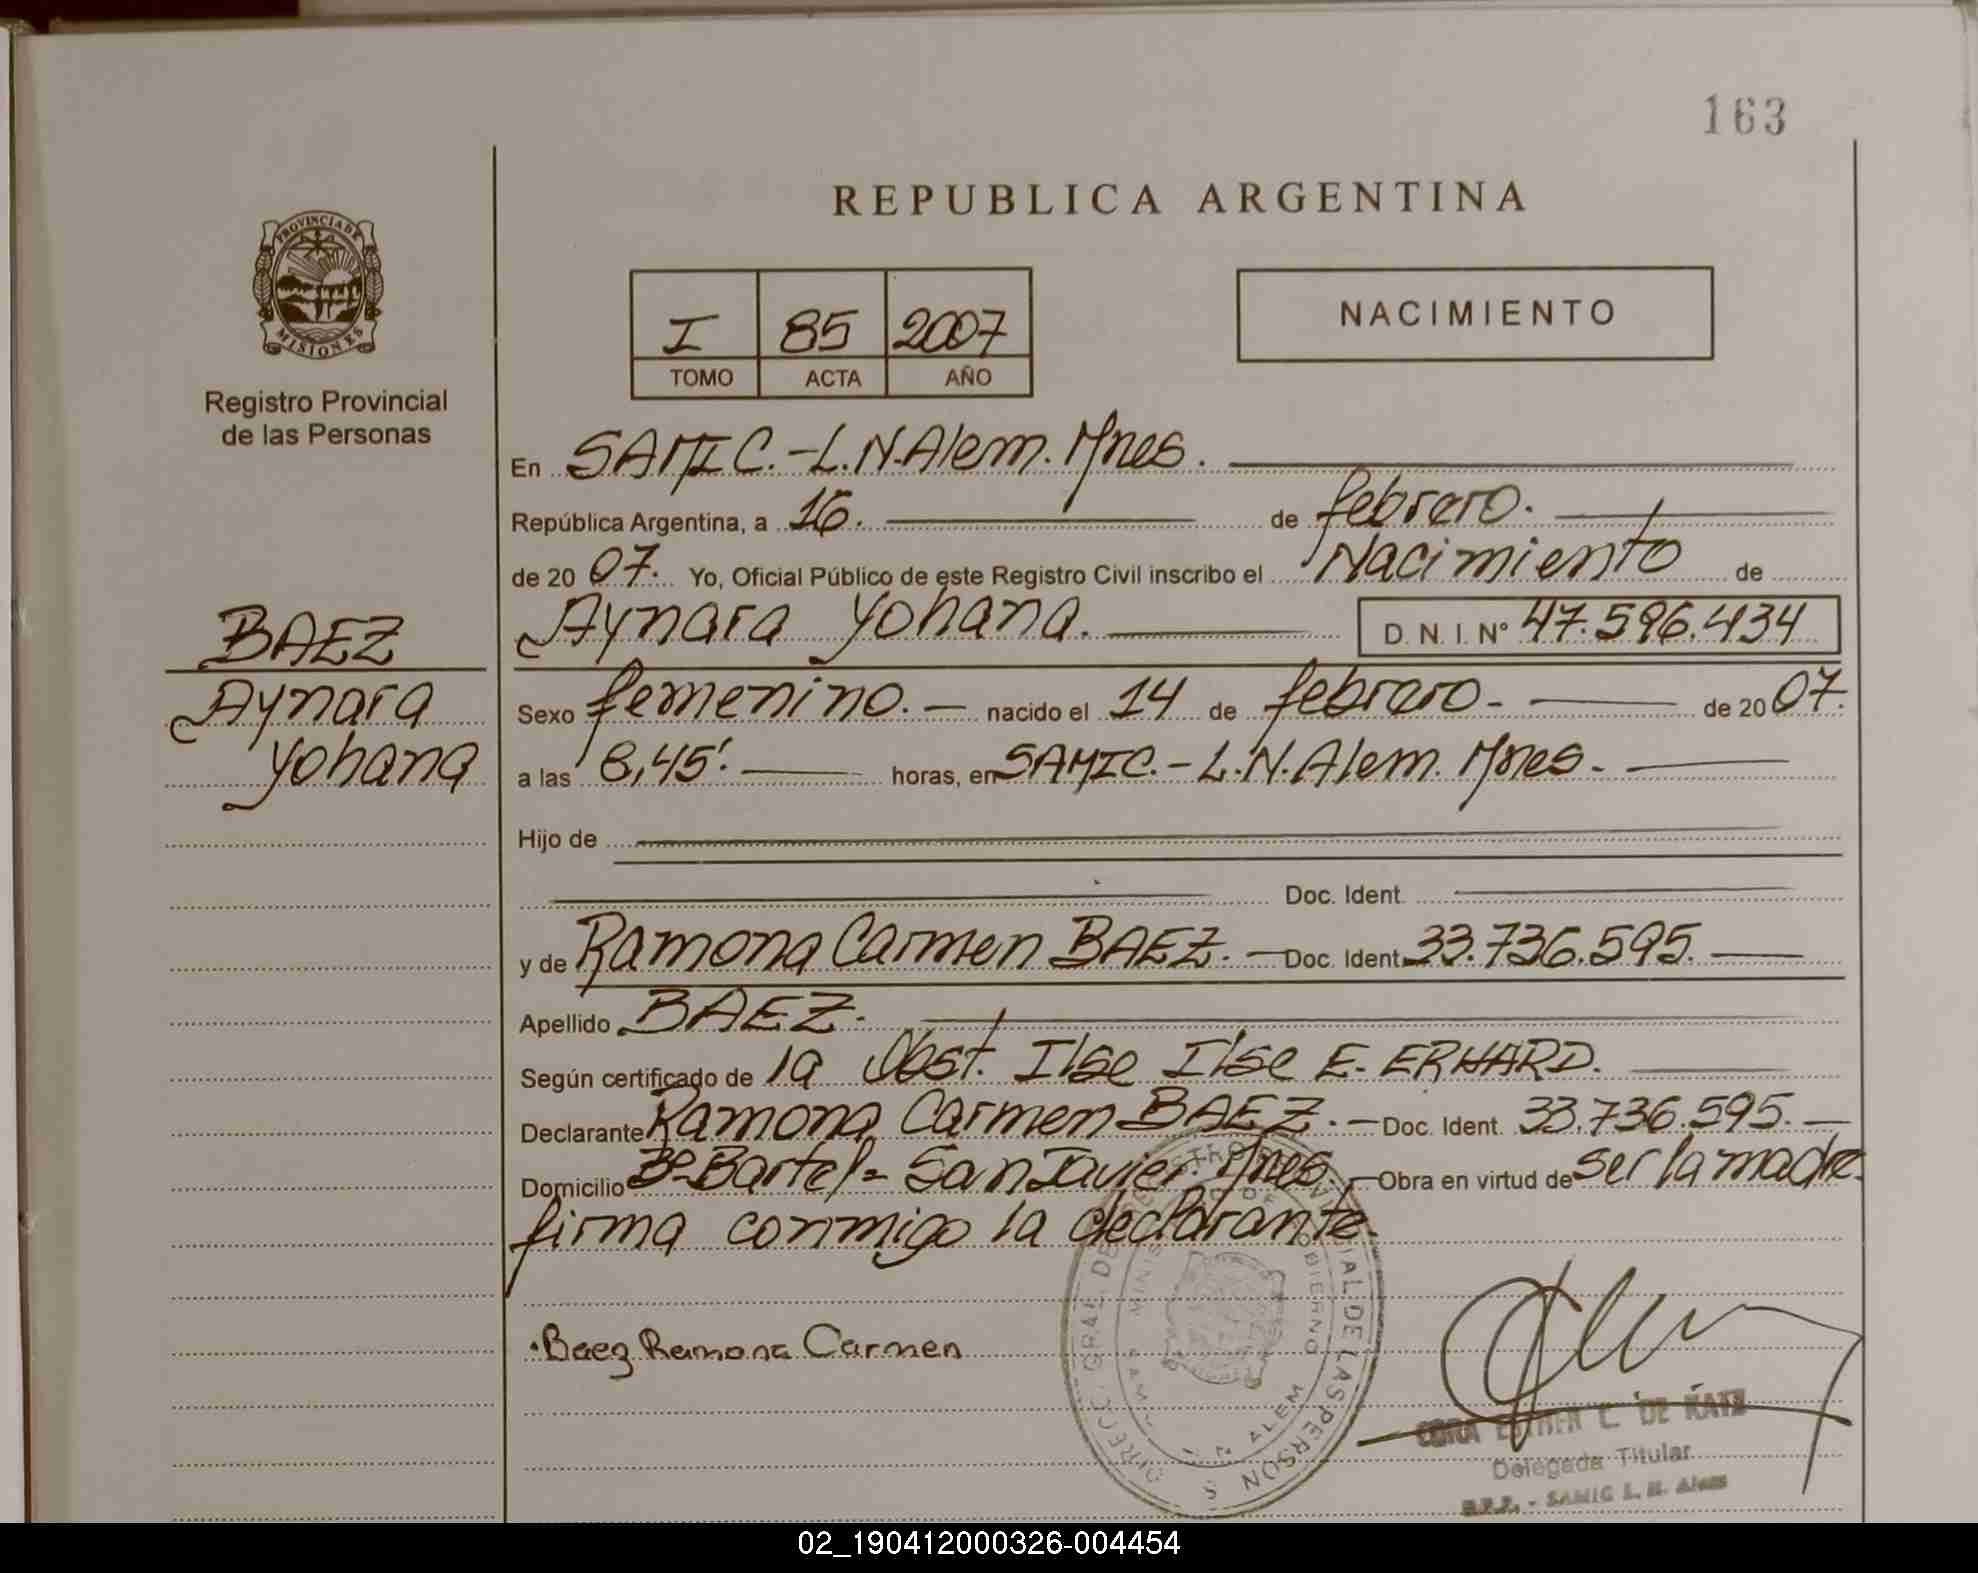 163
REPUBLICA ARGENTINA
PROVINCIA DE
MISIONES
Registro Provincial
de las Personas
I 85 2007
TOMO ACTA AÑO
NACIMIENTO
En SAMIC.-L.N.Alem. Mnes.
República Argentina, a 16. de febrero.
de 20 07. Yo, Oficial Público de este Registro Civil inscribo el Nacimiento de
Aynara Yohana. D. N. I. Nº 47.596.434
BAEZ
Aynara
Yohana
Sexo femenino.- nacido el 14 de febrero.- de 20 07.
a las 8,45'. horas, en SAMIC.-L.N.Alem. Mnes.-
Hijo de
Doc. Ident.
y de Ramona Carmen BAEZ.- Doc. Ident. 33.736.595.
Apellido BAEZ.
Según certificado de la Obst. Ilse Ilse E. ERHARD.
Declarante Ramona Carmen BAEZ.- Doc. Ident. 33.736.595.-
Domicilio Bº Bartel= San Javier. Mnes.- Obra en virtud de ser la madre.
firma conmigo la declarante.
Baez Ramona Carmen
DIRECC. GRAL. DE PROVINCIAL DE LAS PERSONAS
GOBIERNO
L. N. ALEM
ESTHER C. DE KATZ
Delegada Titular
R.P.P. - SAMIC L. N. Alem
02_190412000326-004454